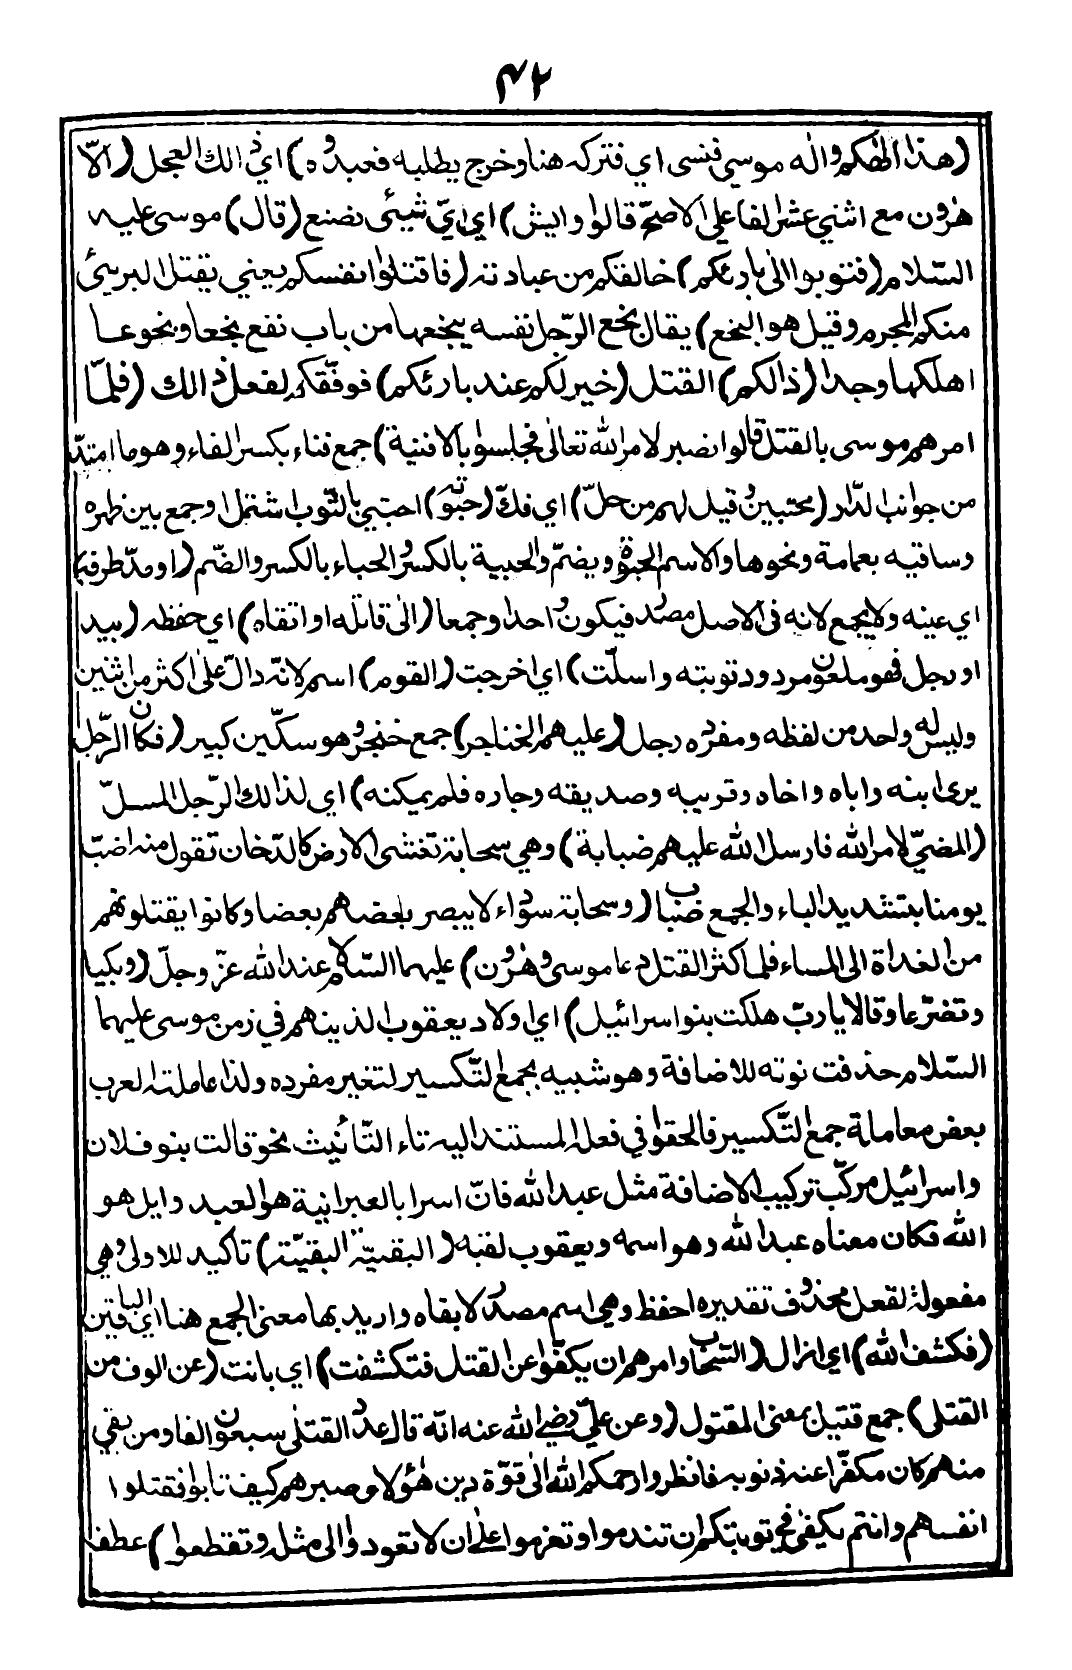 ٤٢
(هذا الهكم واله موسى فنسى اي فتركه هنا وخرج يطلبه فعبدوه) اي ذالك العجل (الّا
هرون مع اثني عشر الفا على الاصحّ قالوا وايش) اي ايّ شيئ نصنع (قال) موسى عليه
السّلام (فتوبوا الى بارئكم) خالقكم من عبادته (فاقتلوا انفسكم يعني يقتل البريئ
منكم المجرم وقيل هو البخع) يقال بخع الرّجل نفسه يبخعها من باب نفع بخعا وبخوعا
اهلكها وجدا (ذالكم) القتل (خير لكم عند بارئكم) فوفّقكم لفعل ذالك (فلمّا
امرهم موسى بالقتل قالوا نصبر لامر الله تعالى فجلسوا بالافنية) جمع فناء بكسر الفاء وهو ما امتدّ
من جوانب الدّار (محتبين وقيل لهم من حلّ) اي فكّ (حبوته) احتبي بالثّوب اشتمل او جمع بين ظهره
وساقيه بعمامة ونحوها والاسم الحبوة ويضمّ والحبية بالكسر والحباء بالكسر والضّم (او مدّ طرفه)
اي عينه ولا يجمع لانه في الاصل مصدر فيكون واحدا وجمعا (الى قاتله او اتقاه) اي حفظه (بيد
او رجل فهو ملعون مردود توبته واسلّت) اي اخرجت (القوم) اسم لانّه دالّ على اكثر من اثنين
وليس له واحد من لفظه ومفرده رجل (عليهم الخناجر) جمع خنجر وهو سكّين كبير (فكان الرّجل
يرى ابنه واباه واخاه وقريبه وصديقه وجاره فلم يمكنه) اي لذالك الرّجل المسلّ
(المضيّ لامر الله فارسل الله عليهم ضبابة) وهي سحابة تغشى الارض كالدّخان تقول منه اضبّ
يومنا بتشديد الباء والجمع ضباب (وسحابة سوداء لا يبصر بعضهم بعضا وكانوا يقتلونهم
من الغداة الى المساء فلما كثر القتل دعا موسى وهرون) عليهما السّلام عند الله عزّ وجلّ (وبكيا
وتضرّعا وقالا يا ربّ هلكت بنو اسرائيل) اي اولاد يعقوب الذين هم في زمن موسى عليهما
السّلام حذفت نونه للاضافة وهو شبيه بجمع التّكسير لتغير مفرده ولذا عاملته العرب
بعض معاملة جمع التّكسير فالحقوا في فعله المستند اليه تاء التّأنيث نحو قالت بنو فلان
واسرائيل مركّب تركيب الاضافة مثل عبد الله فانّ اسرا بالعبرانية هو العبد وايل هو
الله فكان معناه عبد الله وهو اسمه ويعقوب لقبه (البقيّة البقيّة) تأكيد للاولى وهي
مفعولة لفعل محذوف تقديره احفظ وهي اسم مصدر لابقاه واريد بها معنى الجمع هنا اي الباقين
(فكشف الله) اي ازال (السّحاب وامرهم ان يكفّوا عن القتل فتكشفت) اي بانت (عن الوف من
القتلى) جمع قتيل بمعنى المقتول (وعن عليّ رضي الله عنه انّه قال عدد القتلى سبعون الفا ومن بقي
منهم كان مكفّرا عنه ذنوبه فانظروا رحمكم الله الى قوّة دين هؤلاء وصبرهم كيف تابوا فقتلوا
انفسهم وانتم يكفى في توبتكم ان تندموا وتعزموا على ان لا تعودوا الى مثله وتقطعوا) عطف